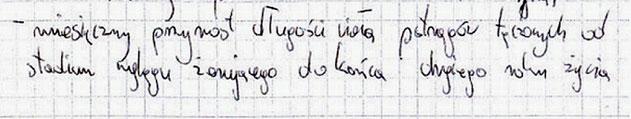 - miesięczny przyrost długości ciała pstrągów tęczowych od
stadium wylęgu żerującego do końca drugiego roku życia